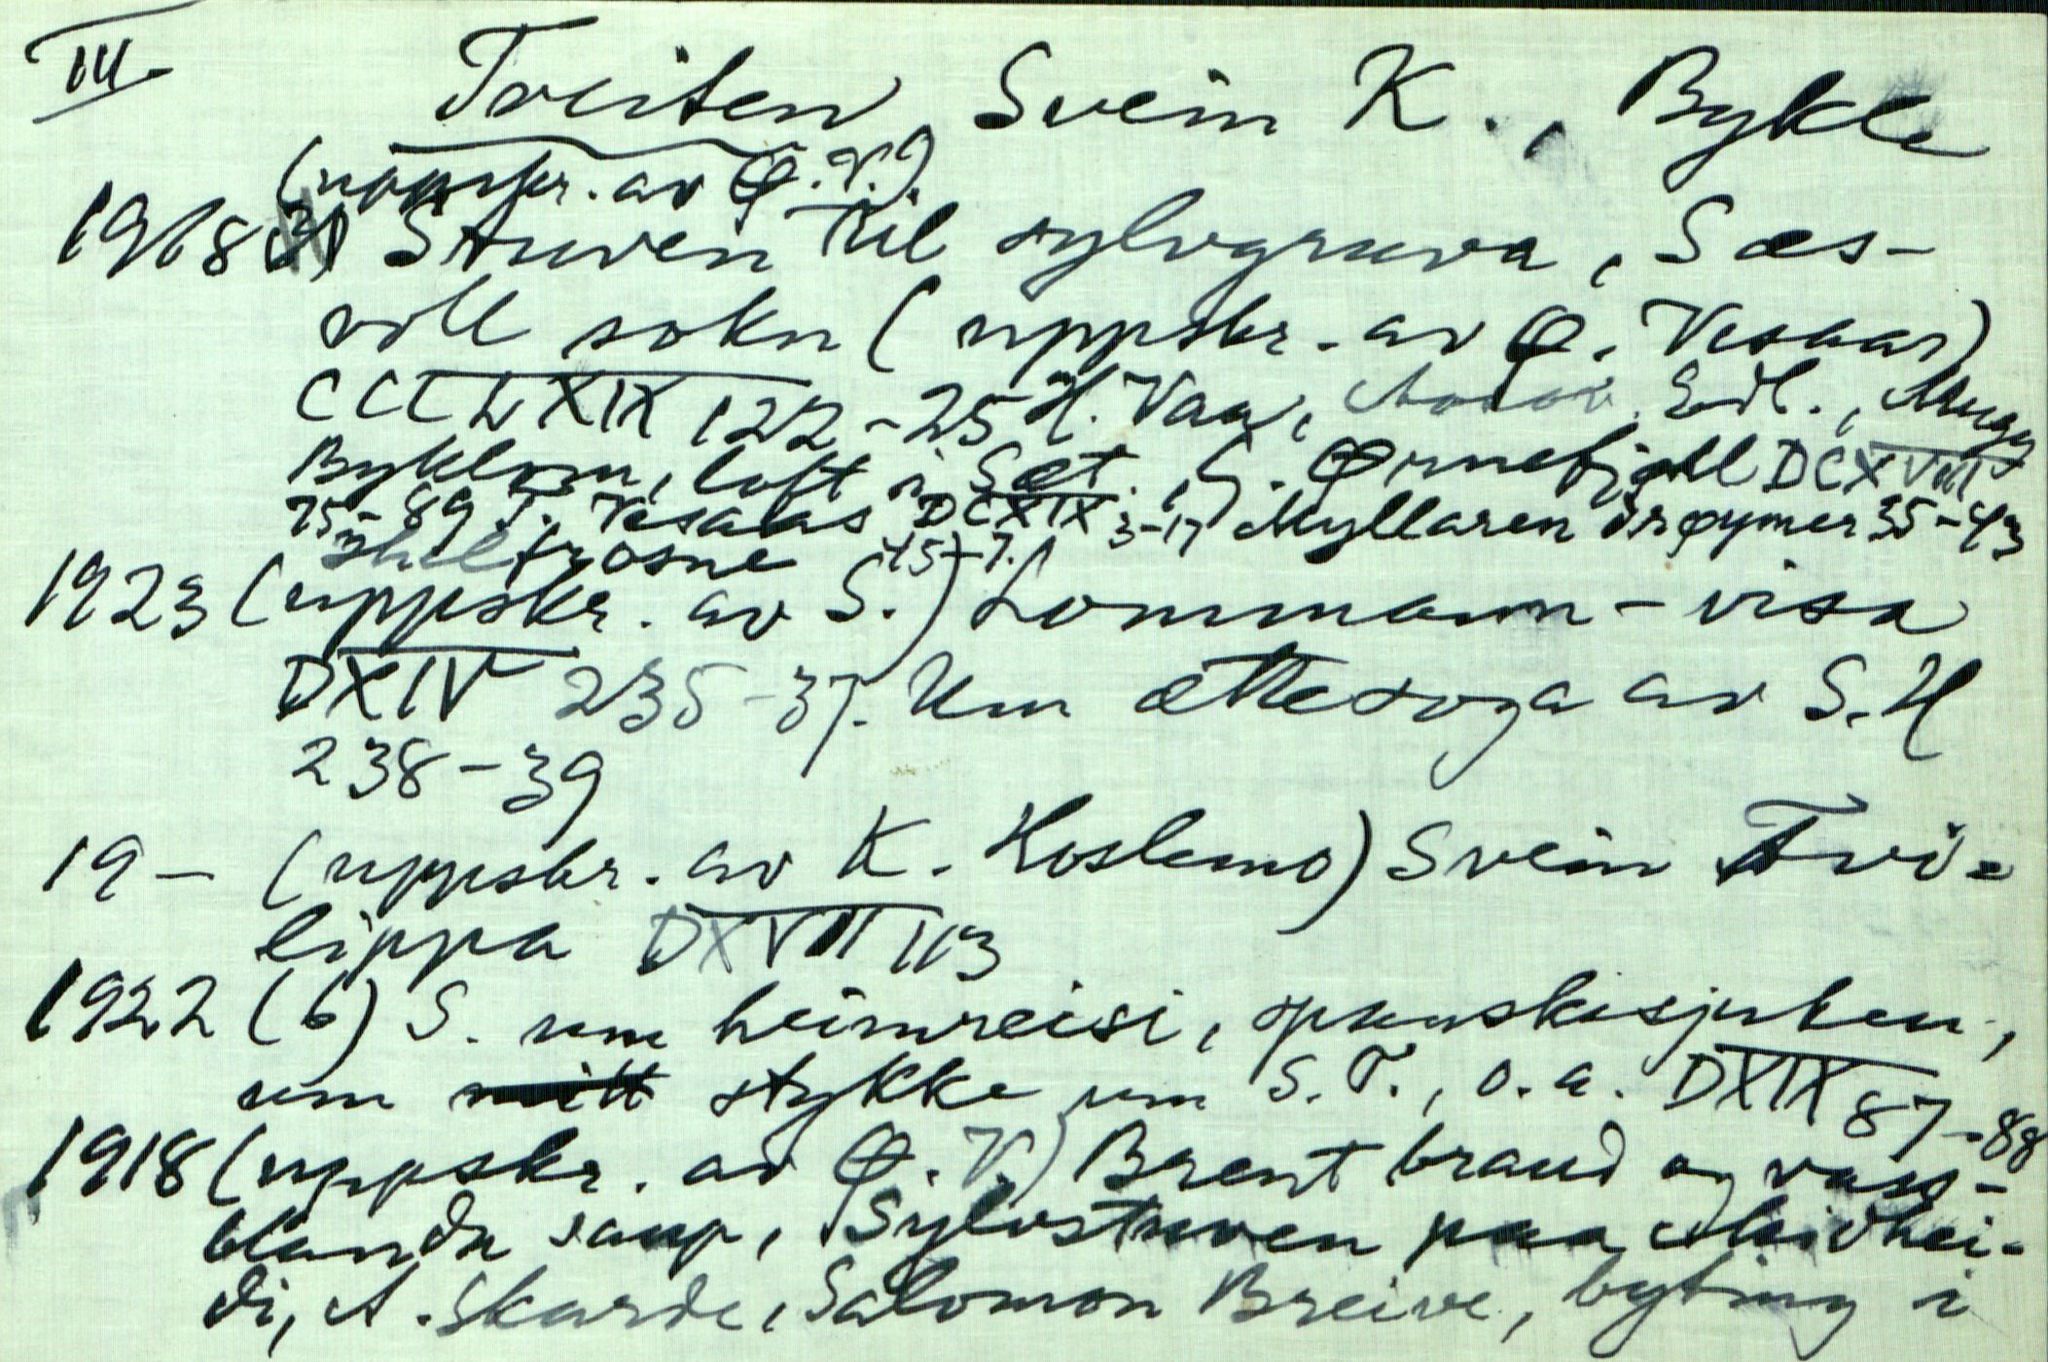 III
Tveiten, Svein K., Bykle
(uppskr. av Ø.V.)
1918 Stuven til sylvgruva, Sæs-
voll sokn (uppskr. av Ø. Vesaas)
CCCLXIX 122-25 H. Vaa, Edl.,
Byklom, loft i Sæt., G. Ørnefjell DCXVIII
75-89 T. Vesaas DCXIX 3-17 Myllaren drøymer 35-43
skeltrosne 45-7.
1923 (uppskr. av S.) Lommann-visa
DXIV 235-37. Um ættesoga av S.H
238-39
19- (uppskr. av K. Hoslemo) Svein Tvi-
lippa DXVII 113
1922 (b) S. um heimreisi, spanskesjuken,
um stykke um S.T., o.a. DXIX 87-88
1918 (uppskr. av Ø.V.) Brent brand og vass-
blanda saup, Sylvstuven paa Meivhei-
di, A. Skarde, Salomon Breive, byting i